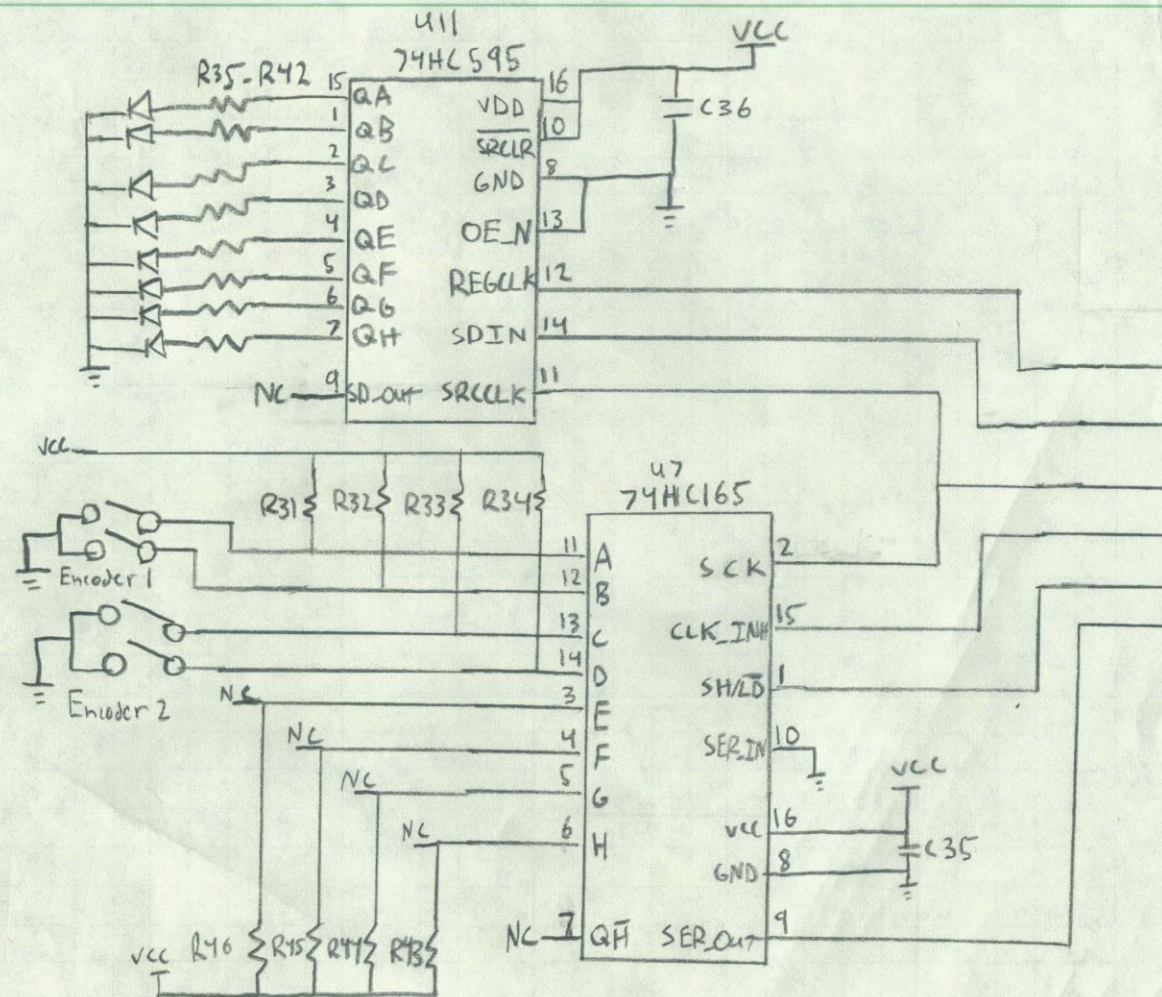 U11
74HC595
VCC
R35-R42
15 QA
1 QB
2 QC
3 QD
4 QE
5 QF
6 QG
7 QH
NC 9 SD_OUT
VDD 16
SRCLR 10
GND 8
OE_N 13
REGCLK 12
SDIN 14
SRCCLK 11
C36
VCC
R31 R32 R33 R34
U7
74HC165
Encoder 1
Encoder 2
11 A
12 B
13 C
14 D
NC 3 E
NC 4 F
NC 5 G
NC 6 H
NC 7 QH
SCK 2
CLK_INH 15
SH/LD 1
SER_IN 10
VCC
VCC 16
C35
GND 8
SER_OUT 9
VCC R46 R45 R44 R43